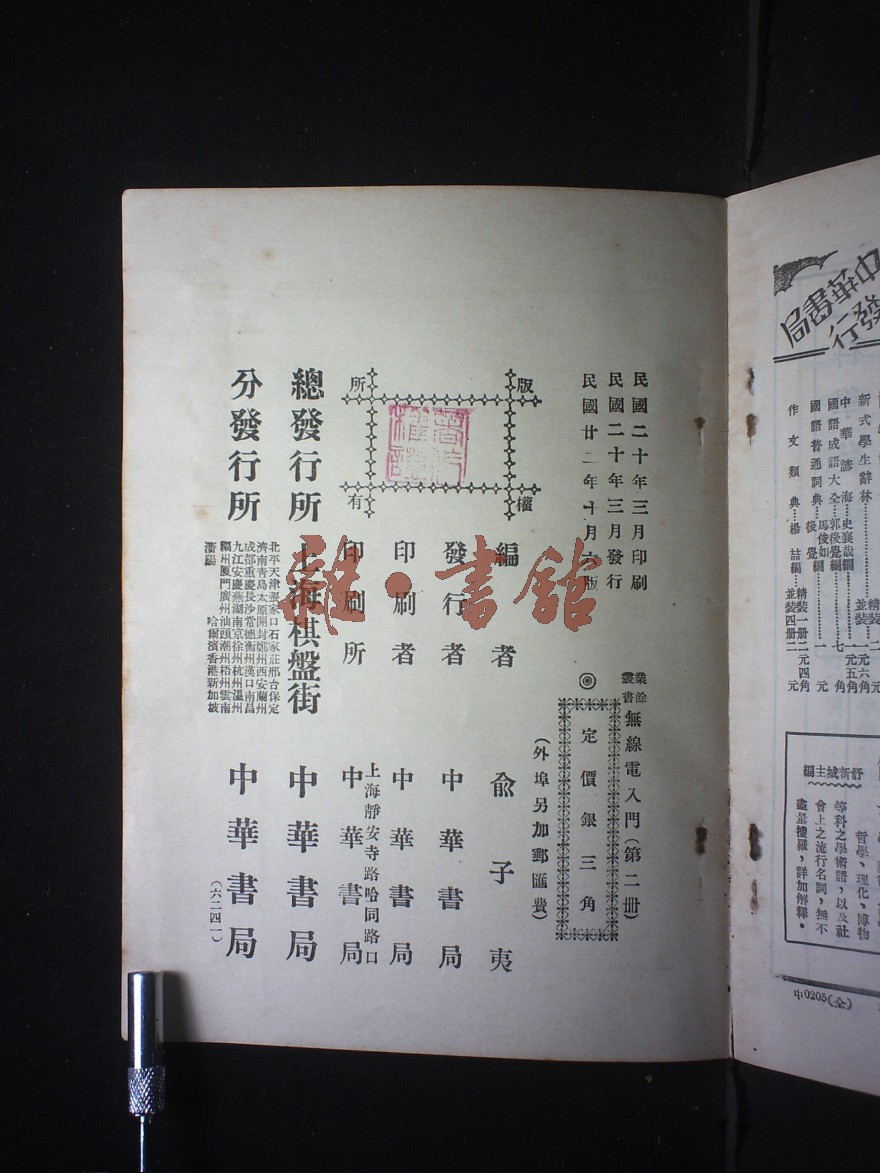 民國二十年三月印刷
民國二十年三月發行
版權所有
業餘叢書 無線電入門（第二册）
◎定價銀三角
（外埠另加郵匯費）
編者 俞子夷
發行者 中華書局
印刷者 中華書局
上海靜安寺路哈同路口
印刷所 中華書局
總發行所 上海棋盤街 中華書局
分發行所 中華書局
北平天津張家口石家莊邢台保定
濟南青島太原開封鄭州西安蘭州
成都重慶長沙常德衡州漢口南昌
九江安慶蕪湖南京徐州杭州溫州
福州厦門廣州汕頭潮州梧州雲南
瀋陽 哈爾濱香港新加坡
（六二四一）
雜·書館
中華書局發行
新式學生辭林
中華諺海 史襄哉編 一元五角
國語成語大全 郭後覺編
國語普通詞典 馬俊如編 後覺 一元
作文類典 楊喆編 精裝一册二元四角 並裝四册二元
舒新城主編
哲學、理化、博物
等科之學術語，以及社
會上之流行名詞，無不
盡量搜羅，詳加解釋。
中0205(全)